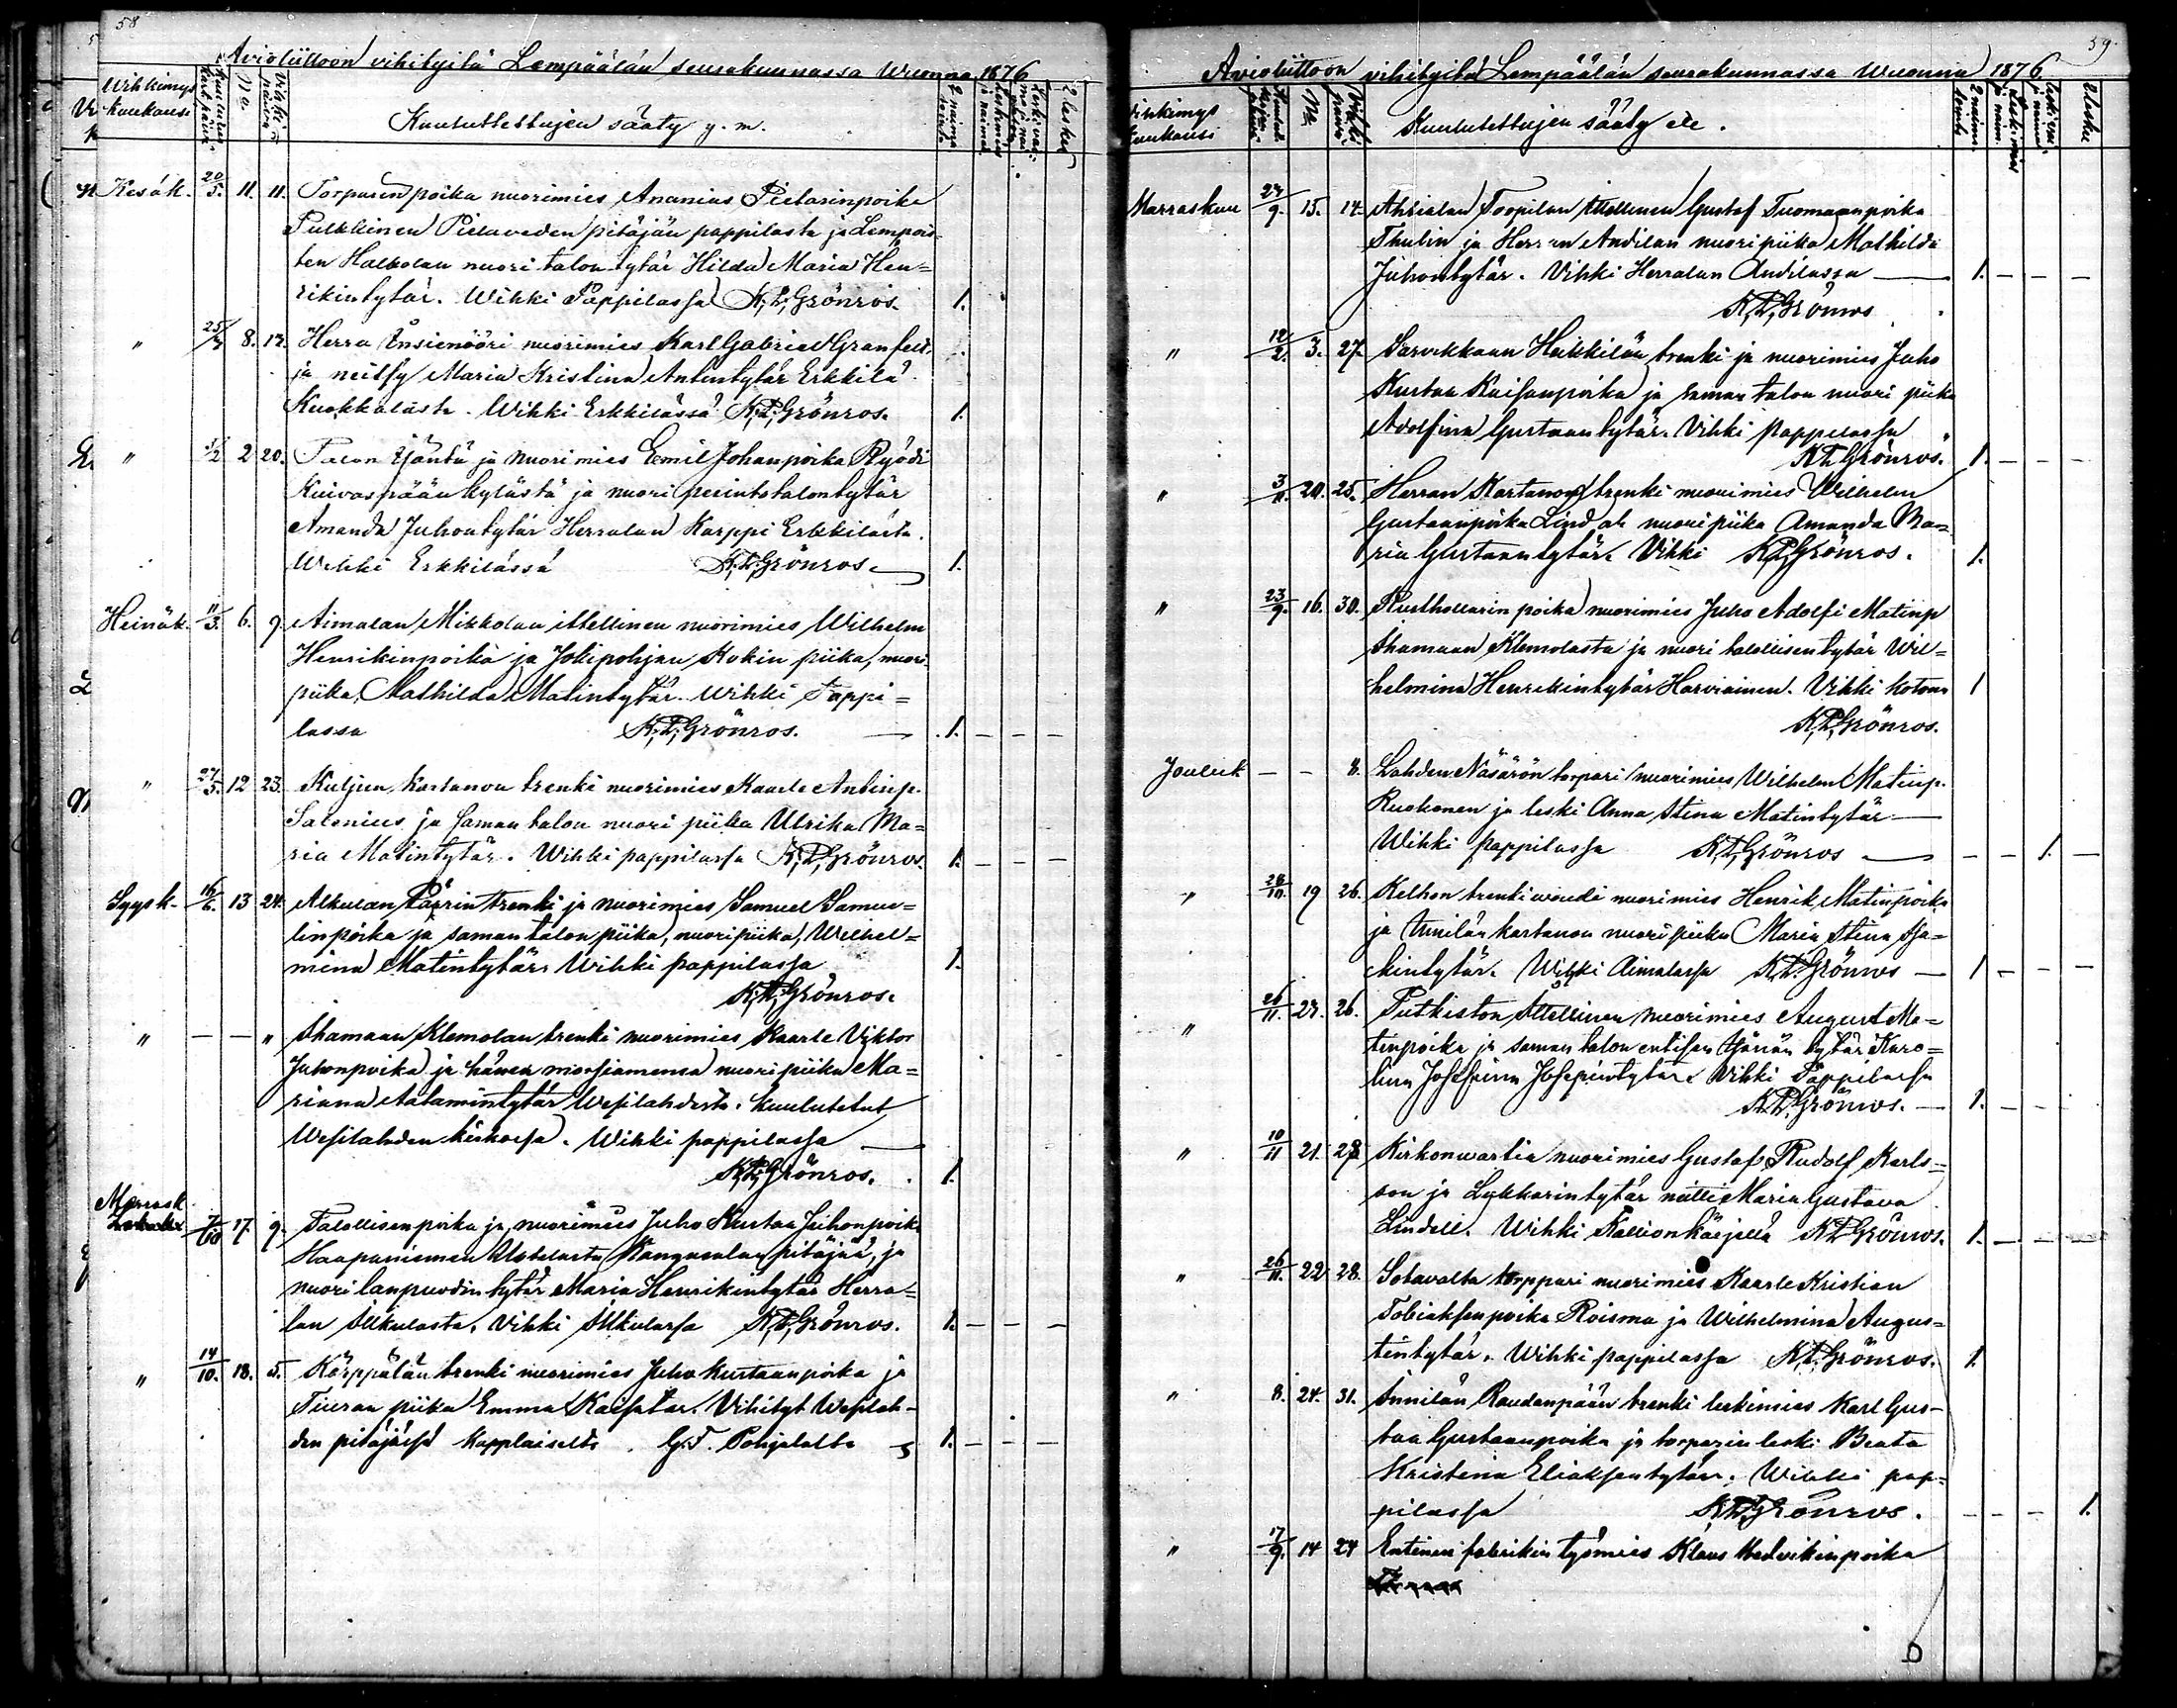 58
Avioliittoon vihityitä Lempäälän seurakunnassa Wuonna 1876
Wihkimys kuukausi
No.
Kuulutettujen sääty y. m.
2 leskeä
Kesäk. 20/5. 11. 11. Torparin poika nuorimies Ananias Pietarinpoika
Pulkkinen Pielaveden pitäjän pappilasta ja Lempois-
ten Halkolan nuori talon tytär Hilda Maria Hen=
rikintytär. Wihki Pappilassa K; L; Grönros. 1.
" 25/5 8. 17. Herra Insienööri nuorimies Karl Gabriel Granfelt,
ja neitsy Maria Kristina Antintytär Erkkilä
Kuokkalasta. Wihki Erkkilässä K; L; Grönros. 1.
" 2 20. Talon isäntä ja Nuorimies Eemil Johanpoika Ryödi
Kuivaspään kylästä ja nuori perintötalontytär
Amanda Juhontytär Herralan Karppi Erkkilästä.
Wihki Erkkilässä K; L; Grönros. 1.
Heinäk. 11/3. 6. 9. Aimalan Mikkolan itellinen nuorimies Wilhelm
Henrikinpoika ja Jokipohjan Kokin piika, nuori
piika Mathilda Matintytär. Wihki Pappi=
lassa K; L; Grönros. 1. – – –
" 27/5. 12 23. Kuljun kartanon trenki nuorimies Kaarle Antinp.
Salenius ja saman talon nuori piika Ulrika Ma=
ria Matintytär. Wihki pappilassa K; L; Grönros. 1. – – –
Syysk. 16/6. 13 24. Alkulan Päärin trenki ja nuorimies Samuel Samue=
linpoika ja saman talon piika, nuori piika, Wilhel=
mina Matintytär. Wihki pappilassa 1.
K; L; Grönros.
" – – " Ahamaan Klemolan trenki nuorimies Kaarle Viktor
Juhonpoika ja hänen morsiamensa nuori piika Ma=
riana Aatamintytär Wesilahdesta. kuulutetut
Wesilahden kirkossa. Wihki pappilassa
K; L; Grönros. 1.
Marrask. 7/10 17. 9. Talollisen poika ja nuorimies Juho Kustaa Juhonpoika
Haapaniemen Kangasalan pitäjää, ja
nuori lanpuodin tytär Maria Henrikintytär Herra=
lan Sillkulasta, Vihki Sillkulassa K; L; Grönros. 1. – – –
" 14/10. 18. 5. Kärppälän trenki nuorimies Juho Kustaanpoika ja
Tiuran piika Emma Kaisatar. Vihityt Wesilah-
den pitäjässä kapplaiselta. G. F. Pohjalalta 1. – – –
59.
Avioliittoon vihityitä Lempäälän seurakunnassa Wuonna 1876.
Wihkimys kuukausi
No
Kuulutettujen sääty etc.
2 leskeä
Marraskuu 24/9. 15. 14. Ahtialan Toopilan Itellinen Gustaf Tuomaanpoika
Thulin ja Herran Andilan nuoripiika Mathilda
Juhontytär. Vihki Herralan Andilassa 1. – – –
K; L; Grönros
" 12/2. 3. 27. Sarvikkaan Heikkilän trenki ja nuorimies Juho
Kustaa Kaisanpoika ja saman talon nuori piika
Adolfina Gustaantytär. Vihki pappilassa
K. L. Grönros. 1. – – –
" 3/11. 20. 25. Herran Kartanon trenki nuorimies Wilhelm
Gustaanpoika Lind ak nuori piika Amanda Ma=
ria Gustaantytär. Vihki K; L; Grönros. 1.
" 23/9. 16. 30. Rusthollarin poika nuorimies Juho Adolfi Matinp
Ahamaan Klemolasta ja nuori talollisentytär Wil=
helmina Henrikintytär Harviainen. Vihki kotona 1
K; L; Grönros.
Jouluk – – 8. Lahden Näsärön torpari nuorimies Wilhelm Matinp.
Ruokonen ja leski Anna Stina Matintytär
Wihki pappilassa K; L; Grönros – – 1. –
" 28/10. 19 26. Kelhon trenkivouti nuorimies Henrik Matinpoika
ja Annilan kartanon nuori piika Maria Stina Isa=
kintytär. Wihki Aimalassa K; L; Grönros 1 – – –
" 26/11. 23. 26. Putkiston Itellinen nuorimies August Ma=
tinpoika ja saman talon entisen isännän tytär Karo=
lina Josefiina Josepintytär. Vihki Pappilassa
K. L. Grönros. 1. – –
" 10/11 21. 28 Kirkonwartia nuorimies Gustaf Rudolf Karls=
son ja Lukkarintytär neitti Maria Gustava
Lindell. Wihki Kallionkärjellä K; L; Grönros. 1. – – –
" 26/11. 22 28. Sotavalta torppari nuorimies Kaarle Kristian
Tobiaksenpoika Roisma ja Wilhelmina Augus=
tintytär. Wihki pappilassa K; L; Grönros. 1.
" 8. 24. 31. Innilän Raudanpään trenki leskimies Karl Gus-
taa Gustaanpoika ja torparin leski Beata
Kristiina Eliaksentytär. Wihki pap=
pilassa K; L; Grönros. – – – 1.
" 17/9. 14 24 Entinen fabrikin työmies Klaus Hedvikinpoika